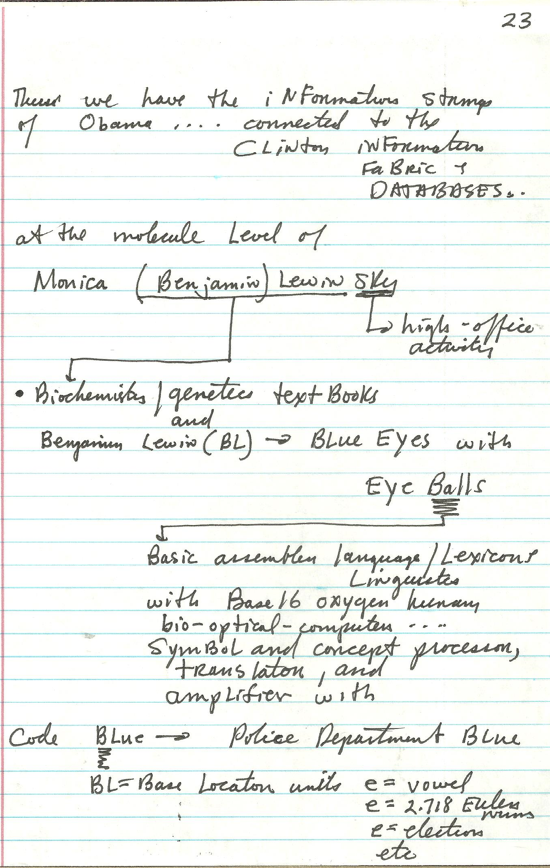 23
Thus we have the iNFormation stamps
of Obama .... connected to the
CLiNton iNFormation
FaBric &
DATABASES..
at the molecule Level of
Monica (Benjamin) Lewin sky
high-office
activity
• Biochemistry / genetics text Books
and
Benjamin Lewin (BL) → BLUE EYES with
Eye Balls
Basic assembler language / Lexicons
Linguistics
with Base 16 oxygen human
bio-optical-computer ....
symBoL and concept processor,
translator, and
amplifier with
Code BLue → Police Department BLue
BL = Base Location units e = vowel
e = 2.718 Eulers
e = electron
etc